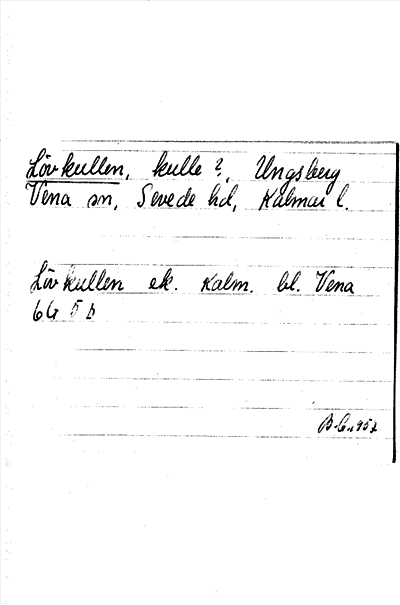 Lövkullen, kulle?, Ungsberg
Vena sn, Sevede hd, Kalmar l.
Lövkullen ek. Kalm. bl. Vena
6G 5 b